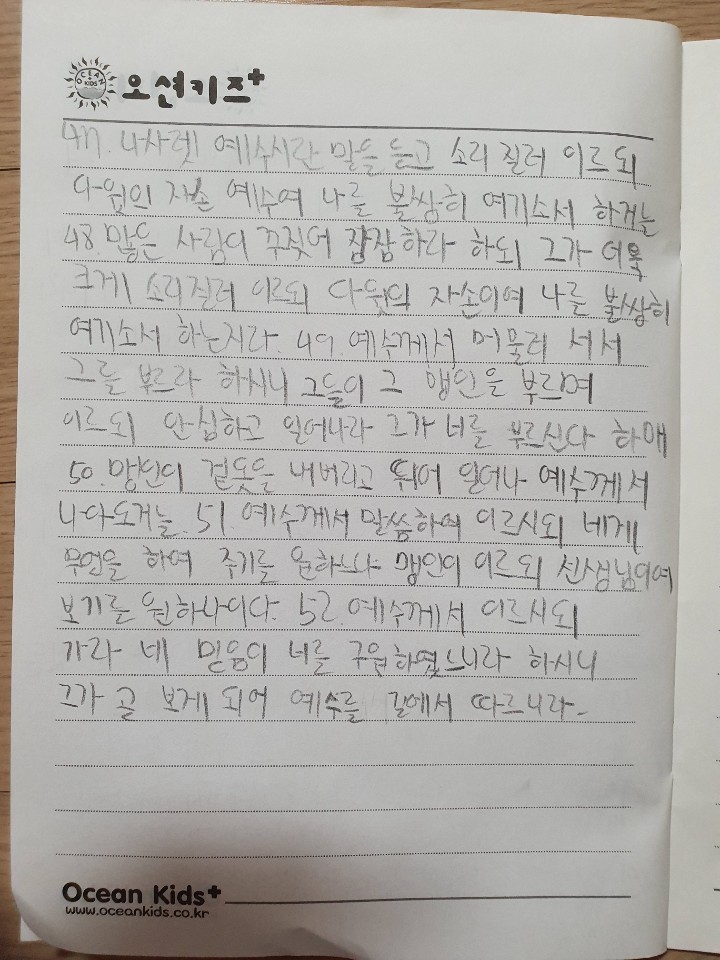 OCEAN KIDS
오션키즈+
47. 나사렛 예수시란 말을 듣고 소리 질러 이르되
다윗의 자손 예수여 나를 불쌍히 여기소서 하거늘
48. 많은 사람이 꾸짖어 잠잠하라 하되 그가 더욱
크게 소리질러 이르되 다윗의 자손이여 나를 불쌍히
여기소서 하는지라. 49. 예수께서 머물러 서서
그를 부르라 하시니 그들이 그 맹인을 부르며
이르되 안심하고 일어나라 그가 너를 부르신다 하매
50. 맹인이 겉옷을 내버리고 뛰어 일어나 예수께서
나아오거늘. 51. 예수께서 말씀하여 이르시되 네게
무엇을 하여 주기를 원하느냐 맹인이 이르되 선생님이여
보기를 원하나이다. 52. 예수께서 이르시되
가라 네 믿음이 너를 구원하였느니라 하시니
그가 곧 보게 되어 예수를 길에서 따르니라-
Ocean Kids+
www.oceankids.co.kr